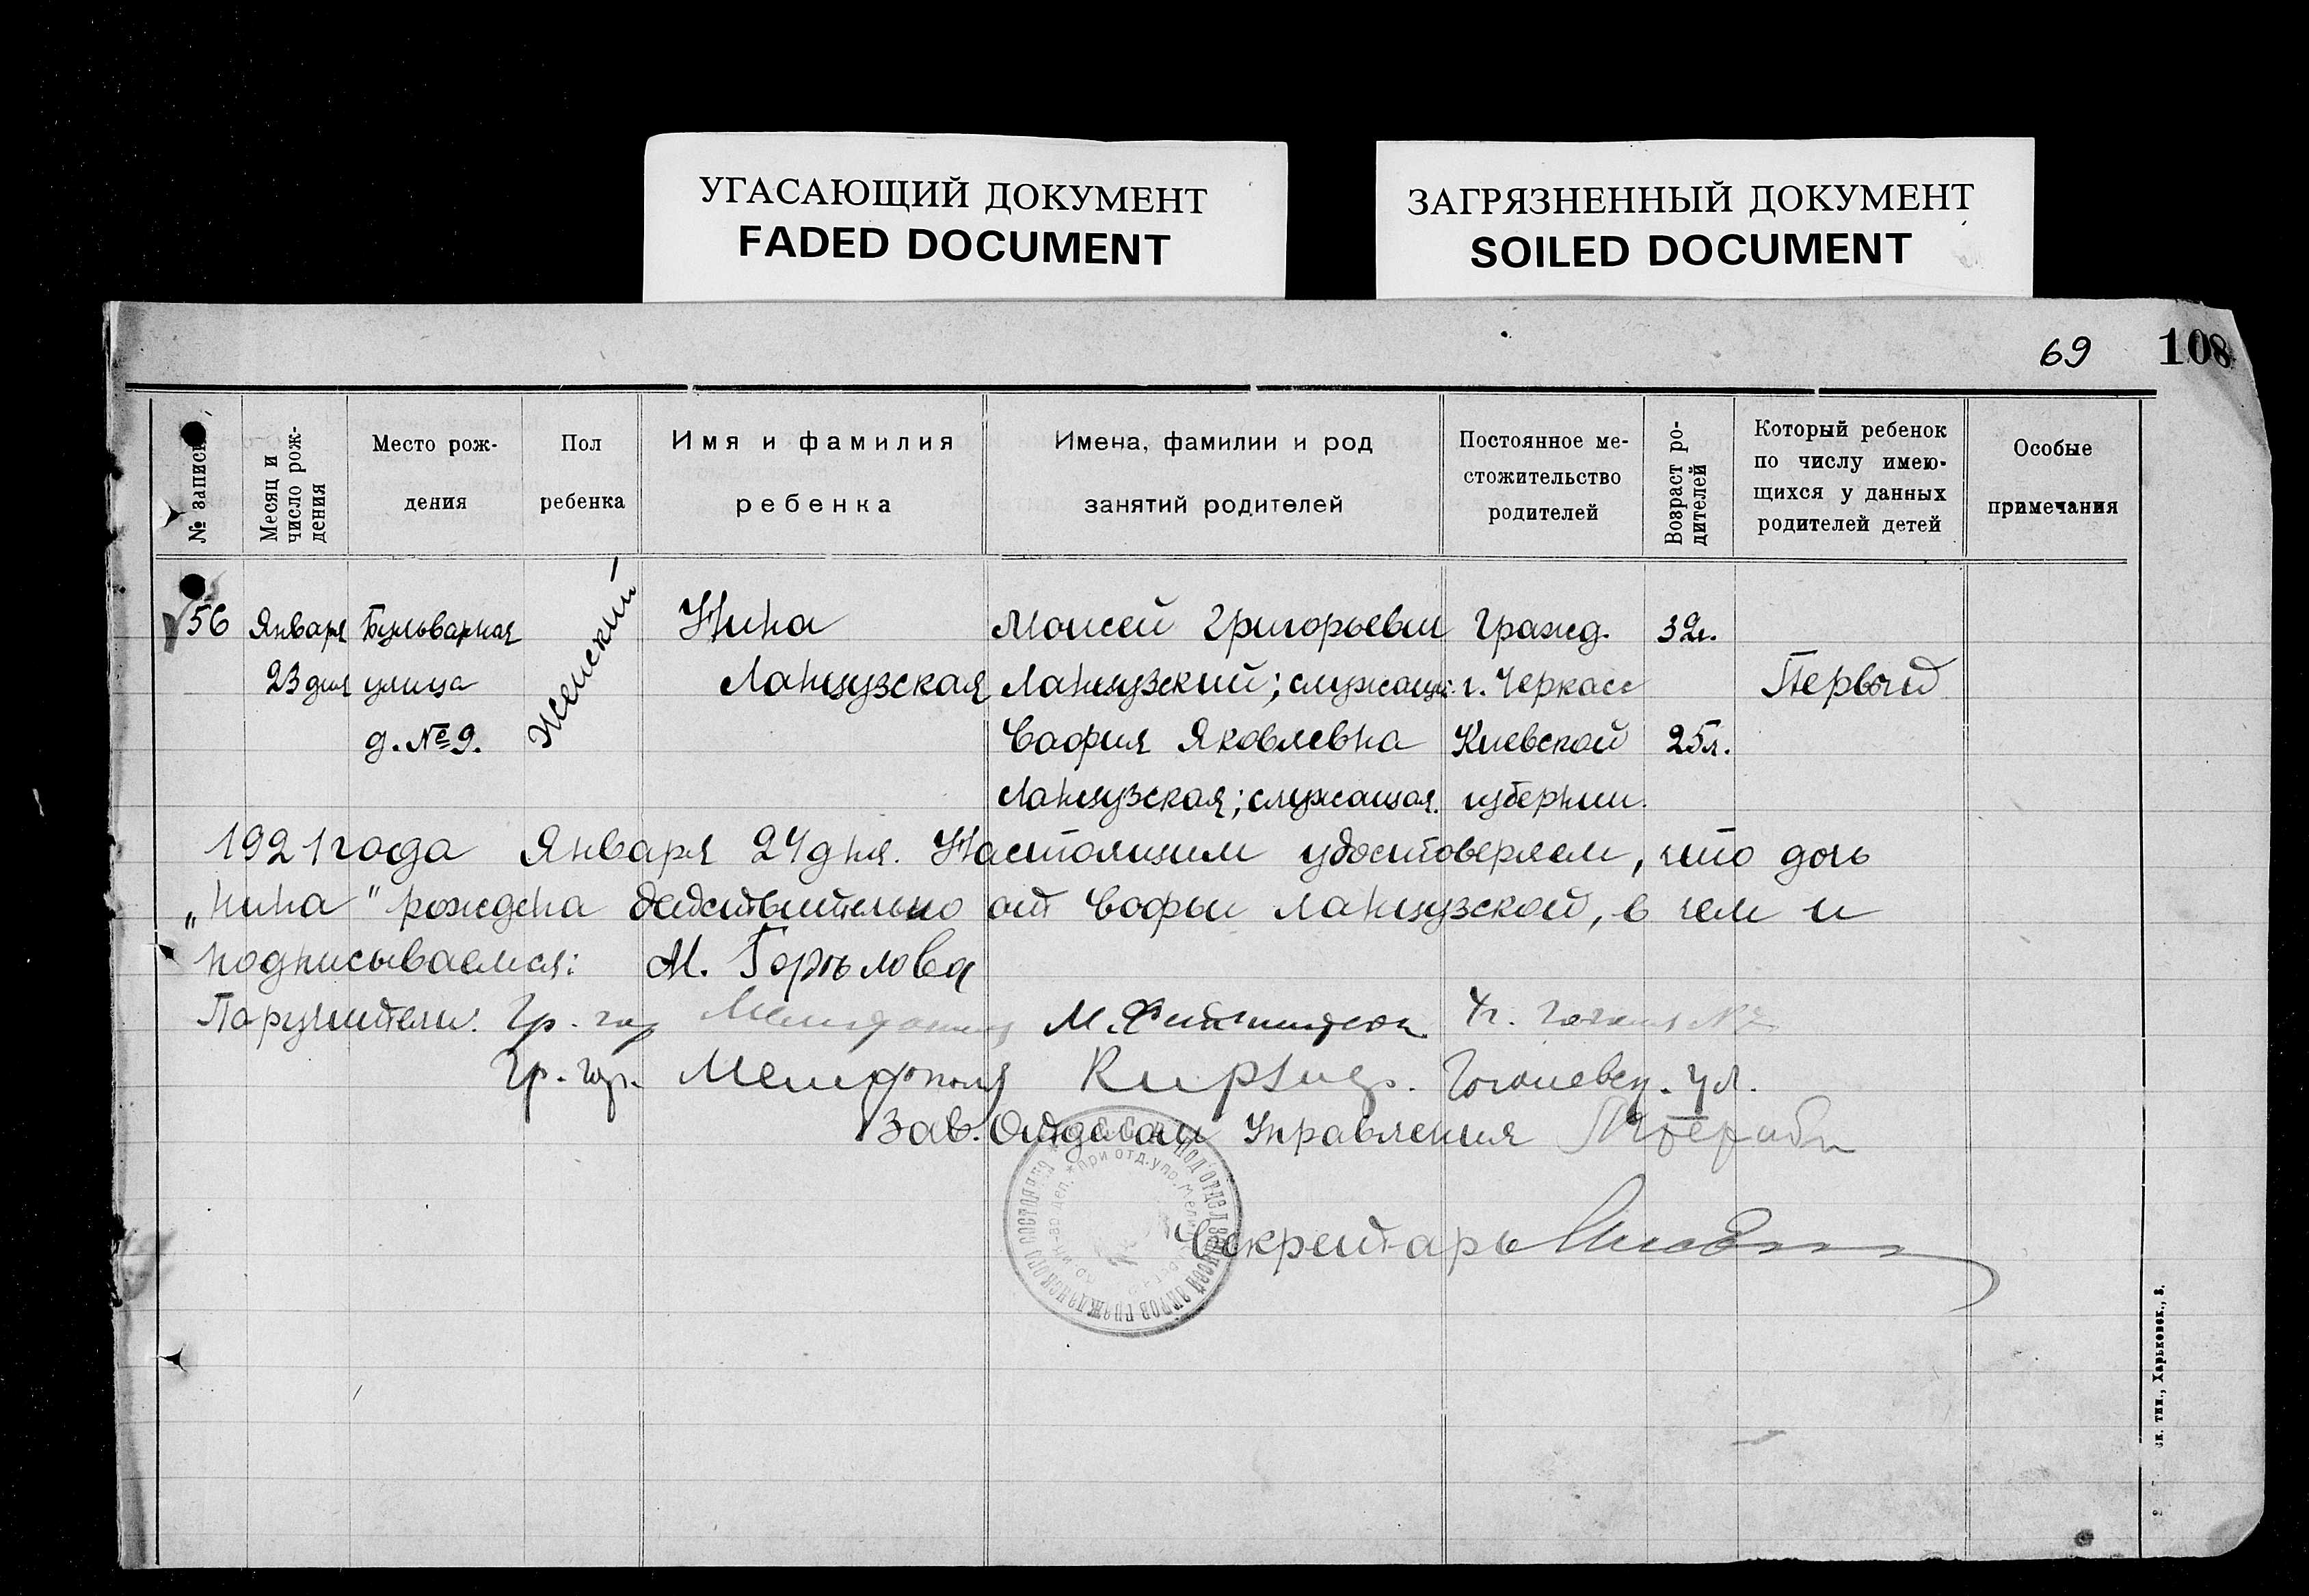 УГАСАЮЩИЙ ДОКУМЕНТ
FADED DOCUMENT
ЗАГРЯЗНЕННЫЙ ДОКУМЕНТ
SOILED DOCUMENT
69 108
№ записи
Месяц и
число рож-
дения
Место рож-
дения
Пол
ребенка
Имя и фамилия
ребенка
Имена, фамилии и род
занятий родителей
Постоянное ме-
стожительство
родителей
Возраст ро-
дителей
Который ребенок
по числу имею-
щихся у данных
родителей детей
Особые
примечания
56
Января
23 дня
Бульварная
улица
д. № 9.
Женский
Нина
Ланцузская
Моисей Григорьевич
Ланцузский; служащий.
София Яковлевна
Ланцузская; служащая.
Гражд.
г. Черкасс
Киевской
губернии.
32л.
25л.
Первый
1921 года Января 24 дня. Настоящим удостоверяем, что дочь
„Нина" рождена действительно от Софьи Ланцузской, в чем и
подписываемся: М.
Поручители: Гр. гор М.
Гр. гор. Мелитополя Гоголевск. ул.
Зав. Отделом Управления
Секретарь
Харьковск., 8.